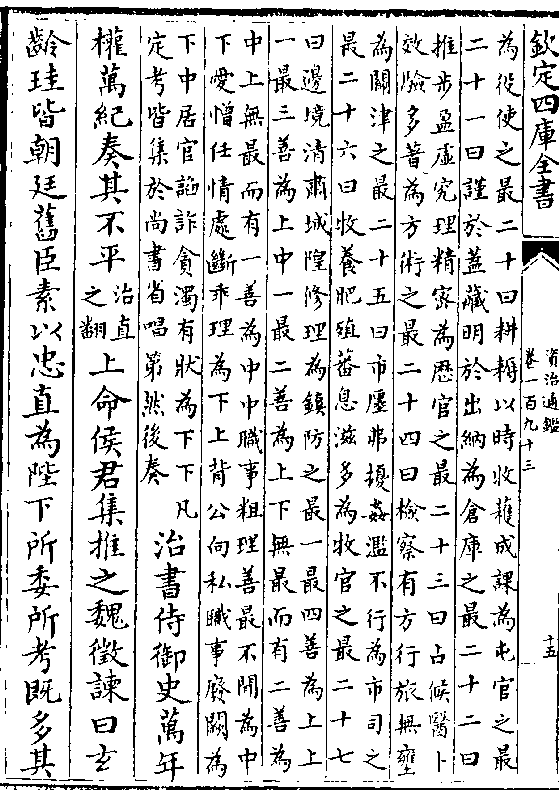 欽定四庫全書
資治通鑑
卷一百九十三
十五
為役使之最二十曰耕耨以時收穫成課為屯官之最
二十一曰謹於蓋藏明於出納為倉庫之最二十二曰
推步盈虛究理精密為歴官之最二十三曰占候醫卜
效驗多著為方術之最二十四曰檢察有方行旅無壅
為關津之最二十五曰市廛弗擾姦濫不行為市司之
最二十六曰牧養肥殖蕃息滋多為牧官之最二十七
曰邊境清肅城隍修理為鎮防之最一最四善為上上
一最三善為上中一最二善為上下無最而有二善為
中上無最而有一善為中中職事粗理善最不聞為中
下愛憎任情處斷乖理為下上背公向私職事廢闕為
下中居官諂詐貪濁有狀為下下凡
定考皆集於尚書省唱第然後奏
治書侍御史萬年
權萬紀奏其不平治直之翻上命侯君集推之魏徵諫曰玄
齡珪皆朝廷舊臣素以忠直為陛下所委所考既多其